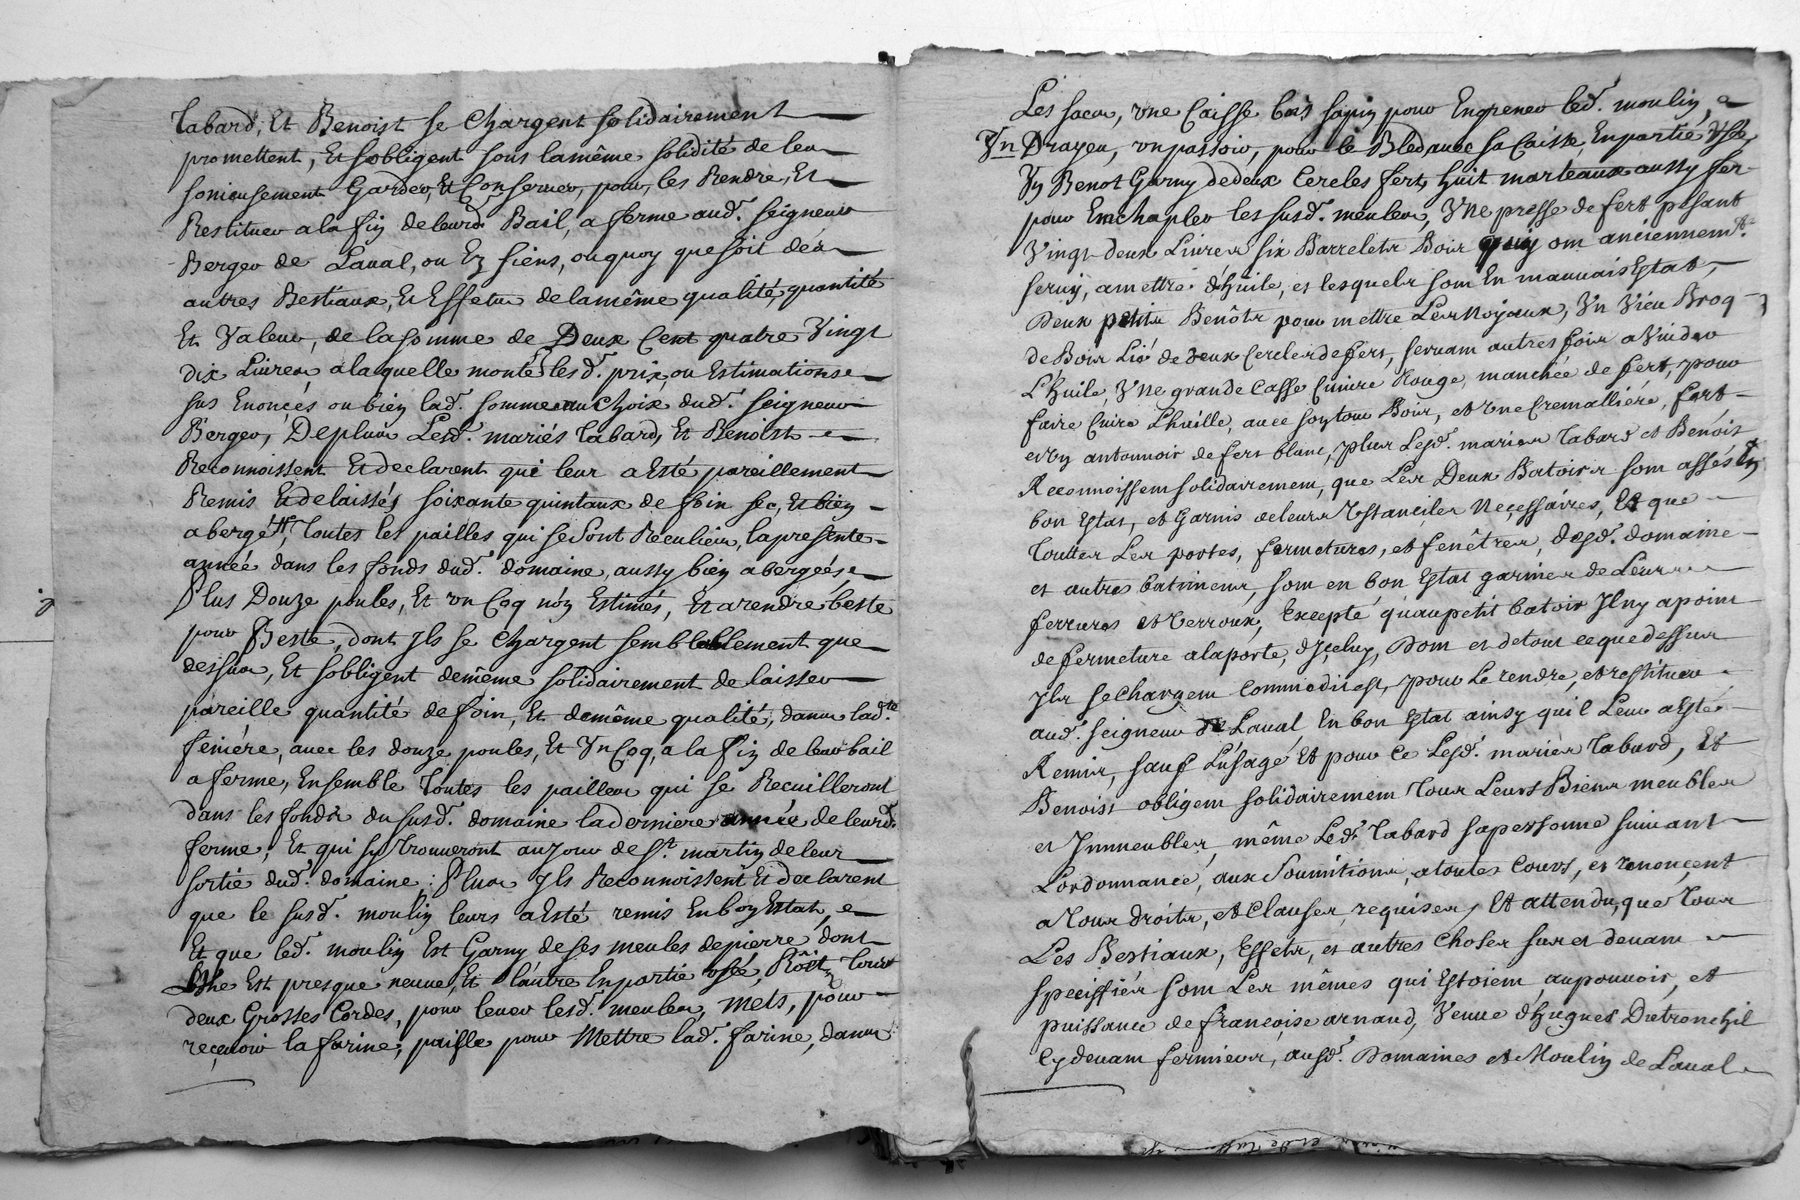 Tabard, Et Benoist se Chargent solidairement
promettent, Et sobligent sous lamême solidité de leu
soneusement Garder, Et Conserver, pour, les Rendre, Et
Restituer a la fin de leurd. Bail, a ferme aud. seigneur
Berger de Laval, ou Ez siens, ou quoy que soit des
autres Bestiaux, Et Effets de la même qualité, quantité
Et Valeur, de la somme de Deux Cent quatre Vingt
dix Livres, a laquelle monte lesd. prix, ou Estimations
sus Enonçés ou bien lad. somme au Choix dud. seigneur
Berger, De plus Lesd. mariés Tabard, Et Benoist
Reconnoissent Et declarent que leur a Esté pareillement
Remis Et delaissés soixante quintaux de foin sec, Et bien
abergé, Toutes les pailles qui se sont Reculies, la presente
année dans les fonds dud. domaine, aussy bien abergées,
Plus Douze poules, Et un Coq non Estimés, Et a rendre beste
pour Beste, dont Ils se Chargent semblablement que
dessus, Et sobligent de même solidairement de laisser
pareille quantité de foin, Et de même qualité, dans lad.te
feniere, avec les douze poules, Et Un Coq, a la fin de leur bail
a ferme, Ensemble Toutes les pailles qui se Recuilleront
dans les fonds du susd. domaine la derniere année de leurd.
ferme, Et qui sy trouveront au jour de St. martin de leur
sortie dud. domaine; Plus Ils Reconnoissent Et declarent
que le susd. moulin leurs a Esté remis En bon Estat,
Et que led. moulin Est Garny de ses meules de pierre, dont
Lune Est presque neuve, Et l'autre En partie usée,
deux Grosses Cordes, pour lever lesd. meules, mets, pour
reçevoir la farine, paisle pour Mettre lad. farine, dans
Les sacs, une Caisse bois sapin pour Engrener led. moulin,
Un Drayeu, un passoir, pour le Bled avec sa Caisse En partie usée
Un Benot Garny de deux Cercles fert, huit marteaux aussy fer
pour Enchapler les susd. meules, Une presse de fert pesant
Vingt deux Livres six Barrelets Bois quy ont anciennemt.
servy, a mettre d'huile, et lesquels sont En mauvais Estat,
Deux petits Benôts pour mettre Les Noyaux, Un Vieu Broq
de Bois Lié de deux Cercles de fert, servant autres fois a Vuider
L'huile, Une grande Casse Cuivre Rouge, manchée de fert, pour
faire Cuire L'huille, avec son tour Bois, et Une Cremalliére, fert
et un antonnoir de fert blanc, plus Lesd. maries Tabard et Benoist
Reconnoissent solidairement, que Les Deux Batoirs sont assés En
bon Estat, et Garnis de leurs Ustanciles Neçessaires, Et que
Toutes Les portes, fermetures, et fenêtres, desd. domaine
et autres batiments, sont en bon Estat garnies de Leurs
ferrures et Verroux, Excepté qu'au petit batoir Il ny a point
de fermeture a la porte, d'Içeluy, Dont et de tout ce que dessus
Ils se Chargent Comme dit est, pour Le rendre, et restituer
aud. seigneur de Laval, En bon Estat ainsy qu'il Leur a Esté
Remis, sauf L'usage Et pour Ce Lesd. mariés Tabard, Et
Benoist obligent solidairement Tous Leurs Biens meubles
et Immeubles, même Led. Tabard sa personne suivant
L'ordonnance, aux Soumitions, a toutes Cours, et renonçent
a Tous droits, et Clauses, requises, Et attendu, que Tous
Les Bestiaux, Effets, et autres Choses sus et devant
speciffiés sont Les mêmes qui Estoient au pouvoir, et
puissance de françoise arnaud, Veuve d'hugues Dutronchil
Cy devant fermiers, ausd. Domaines et Moulin de Laval